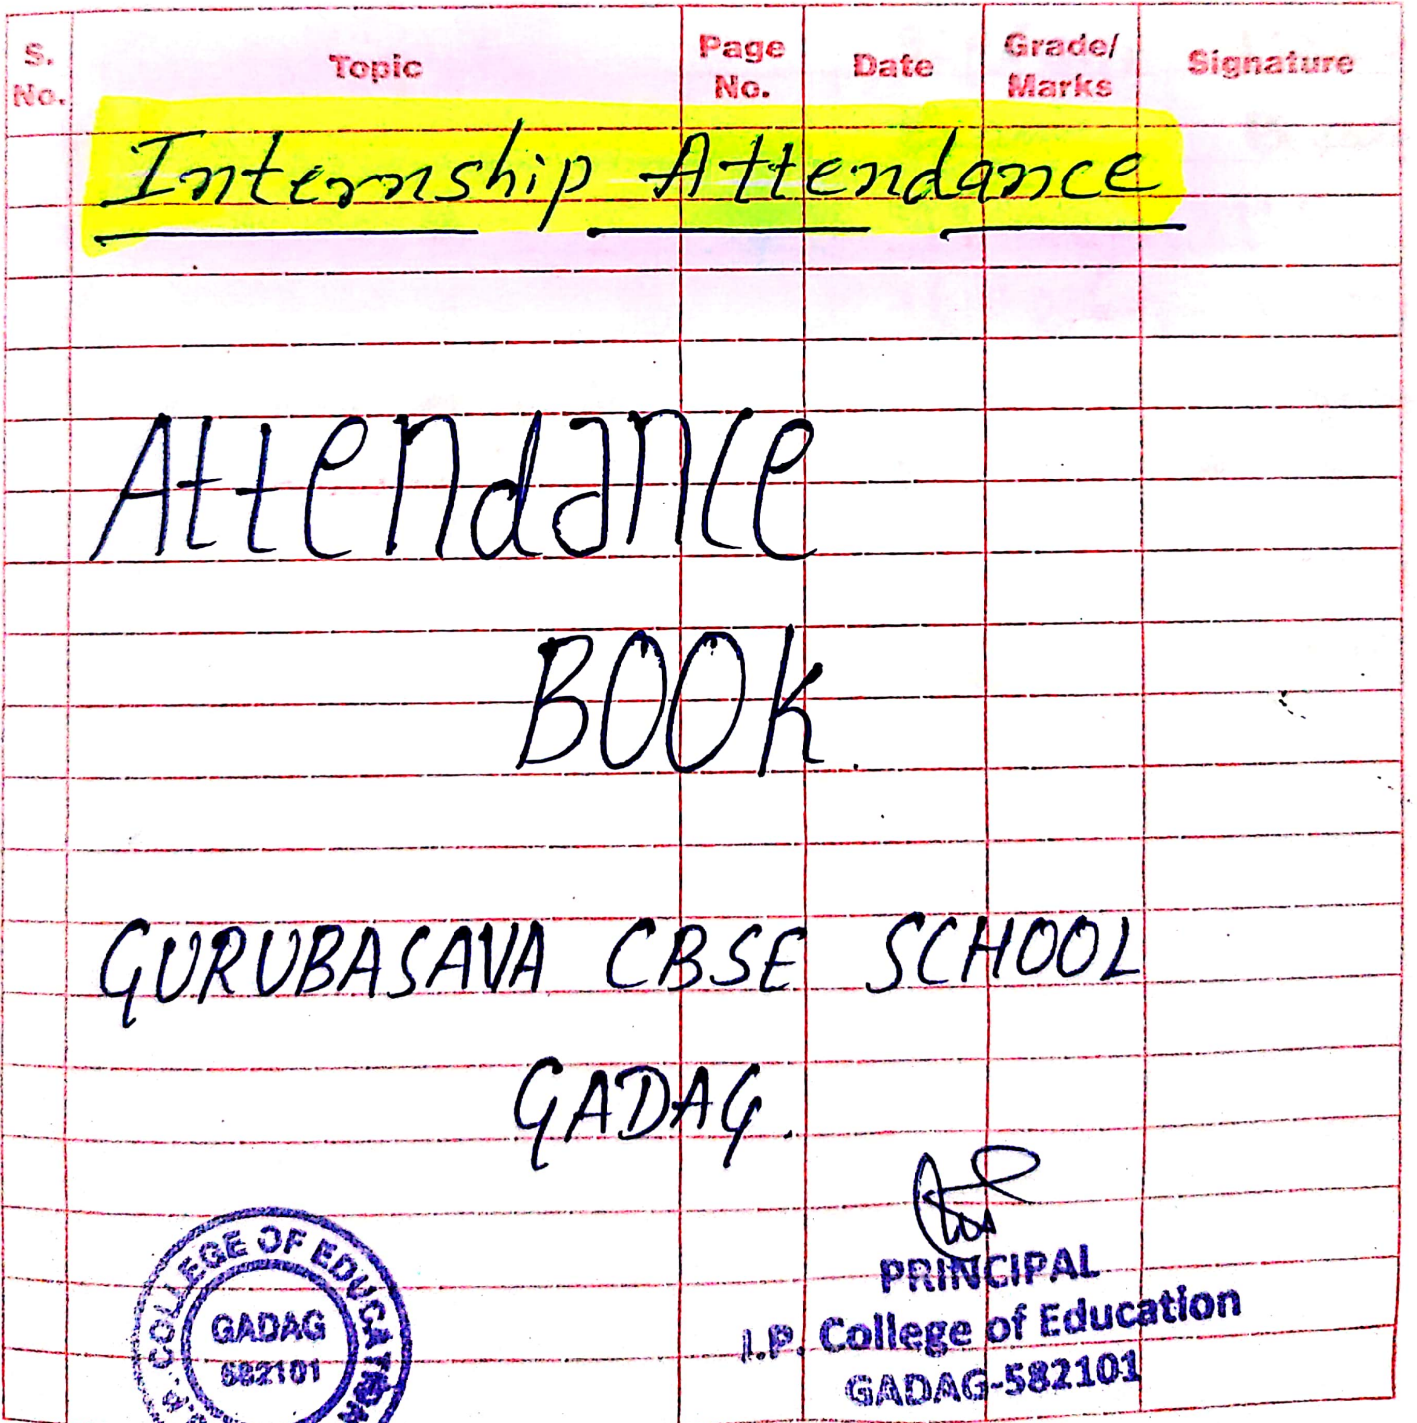 S. No. Topic Page No. Date Grade/ Marks Signature
Internship Attendance
Attendance
BOOK.
GURUBASAVA CBSE SCHOOL
GADAG.
COLLEGE OF EDUCATION
GADAG
582101
PRINCIPAL
I.P. College of Education
GADAG-582101